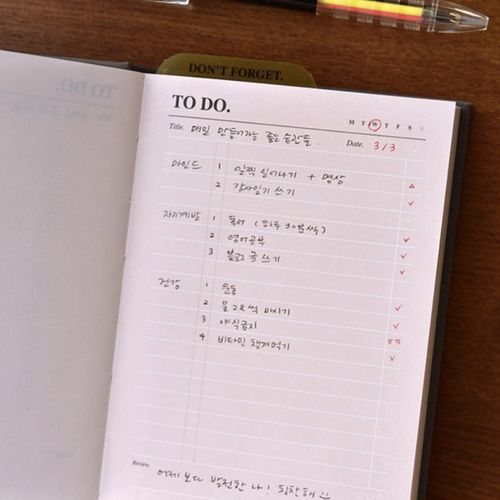 DON'T FORGET.
TO DO.
M T W T F S S
Title. 매일 만들어가는 좋은 습관들.
Date. 3/3
마인드 1 일찍 일어나기 + 명상 △
2 감사일기 쓰기 ✓
자기계발 1 독서 (하루 30분씩)
2 영어공부 ✓
3 블로그 글 쓰기 ✓
✓
건강 1 운동
2 물 2L씩 마시기 ✓
3 야식금지 ✓
4 비타민 챙겨먹기
✓
Review.
어제보다 발전한 나! 칭찬해